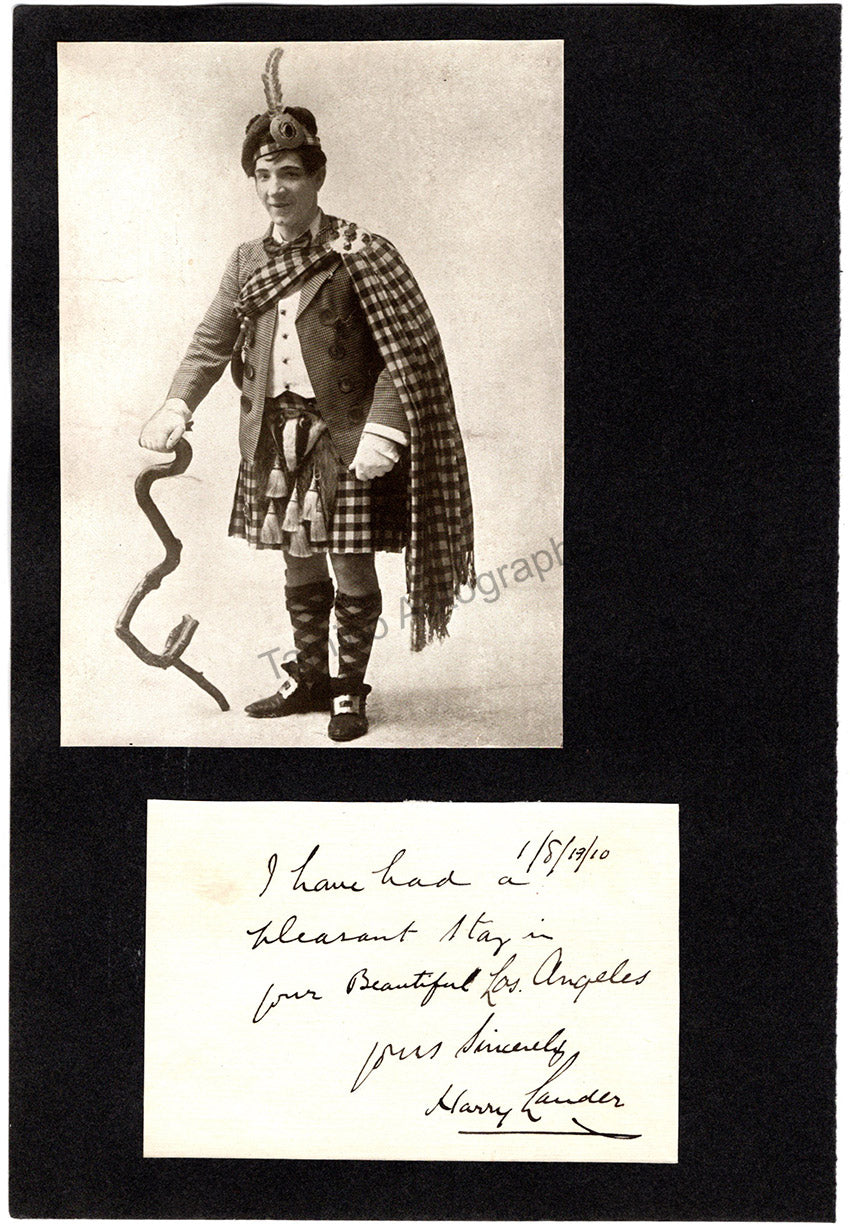 Tamino Autograph
I have had a
pleasant stay in
your Beautiful Los. Angeles
yours Sincerely
Harry Lauder